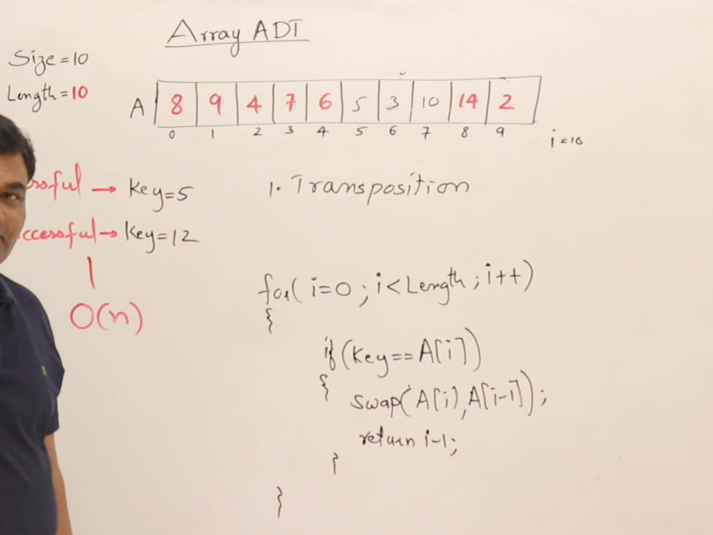 Array ADT
Size=10
Length=10
A 8 9 4 7 6 5 3 10 14 2
0 1 2 3 4 5 6 7 8 9
i=10
→ Key=5
→ Key=12
O(n)
1. Transposition
for( i=0 ; i<Length ; i++)
{
if(Key==A[i])
{ swap(A[i],A[i-1]);
return i-1;
}
}